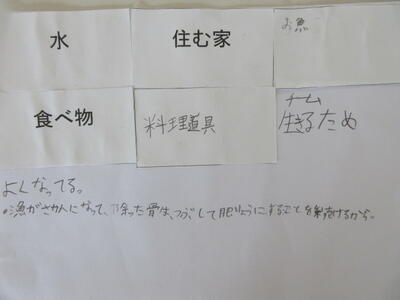 水 住む家 お魚
食べ物 料理道具
チーム
生きるため
よくなってる。
•漁がさかんになって、除った骨は、つぶして肥りょうにすることを続けるから。